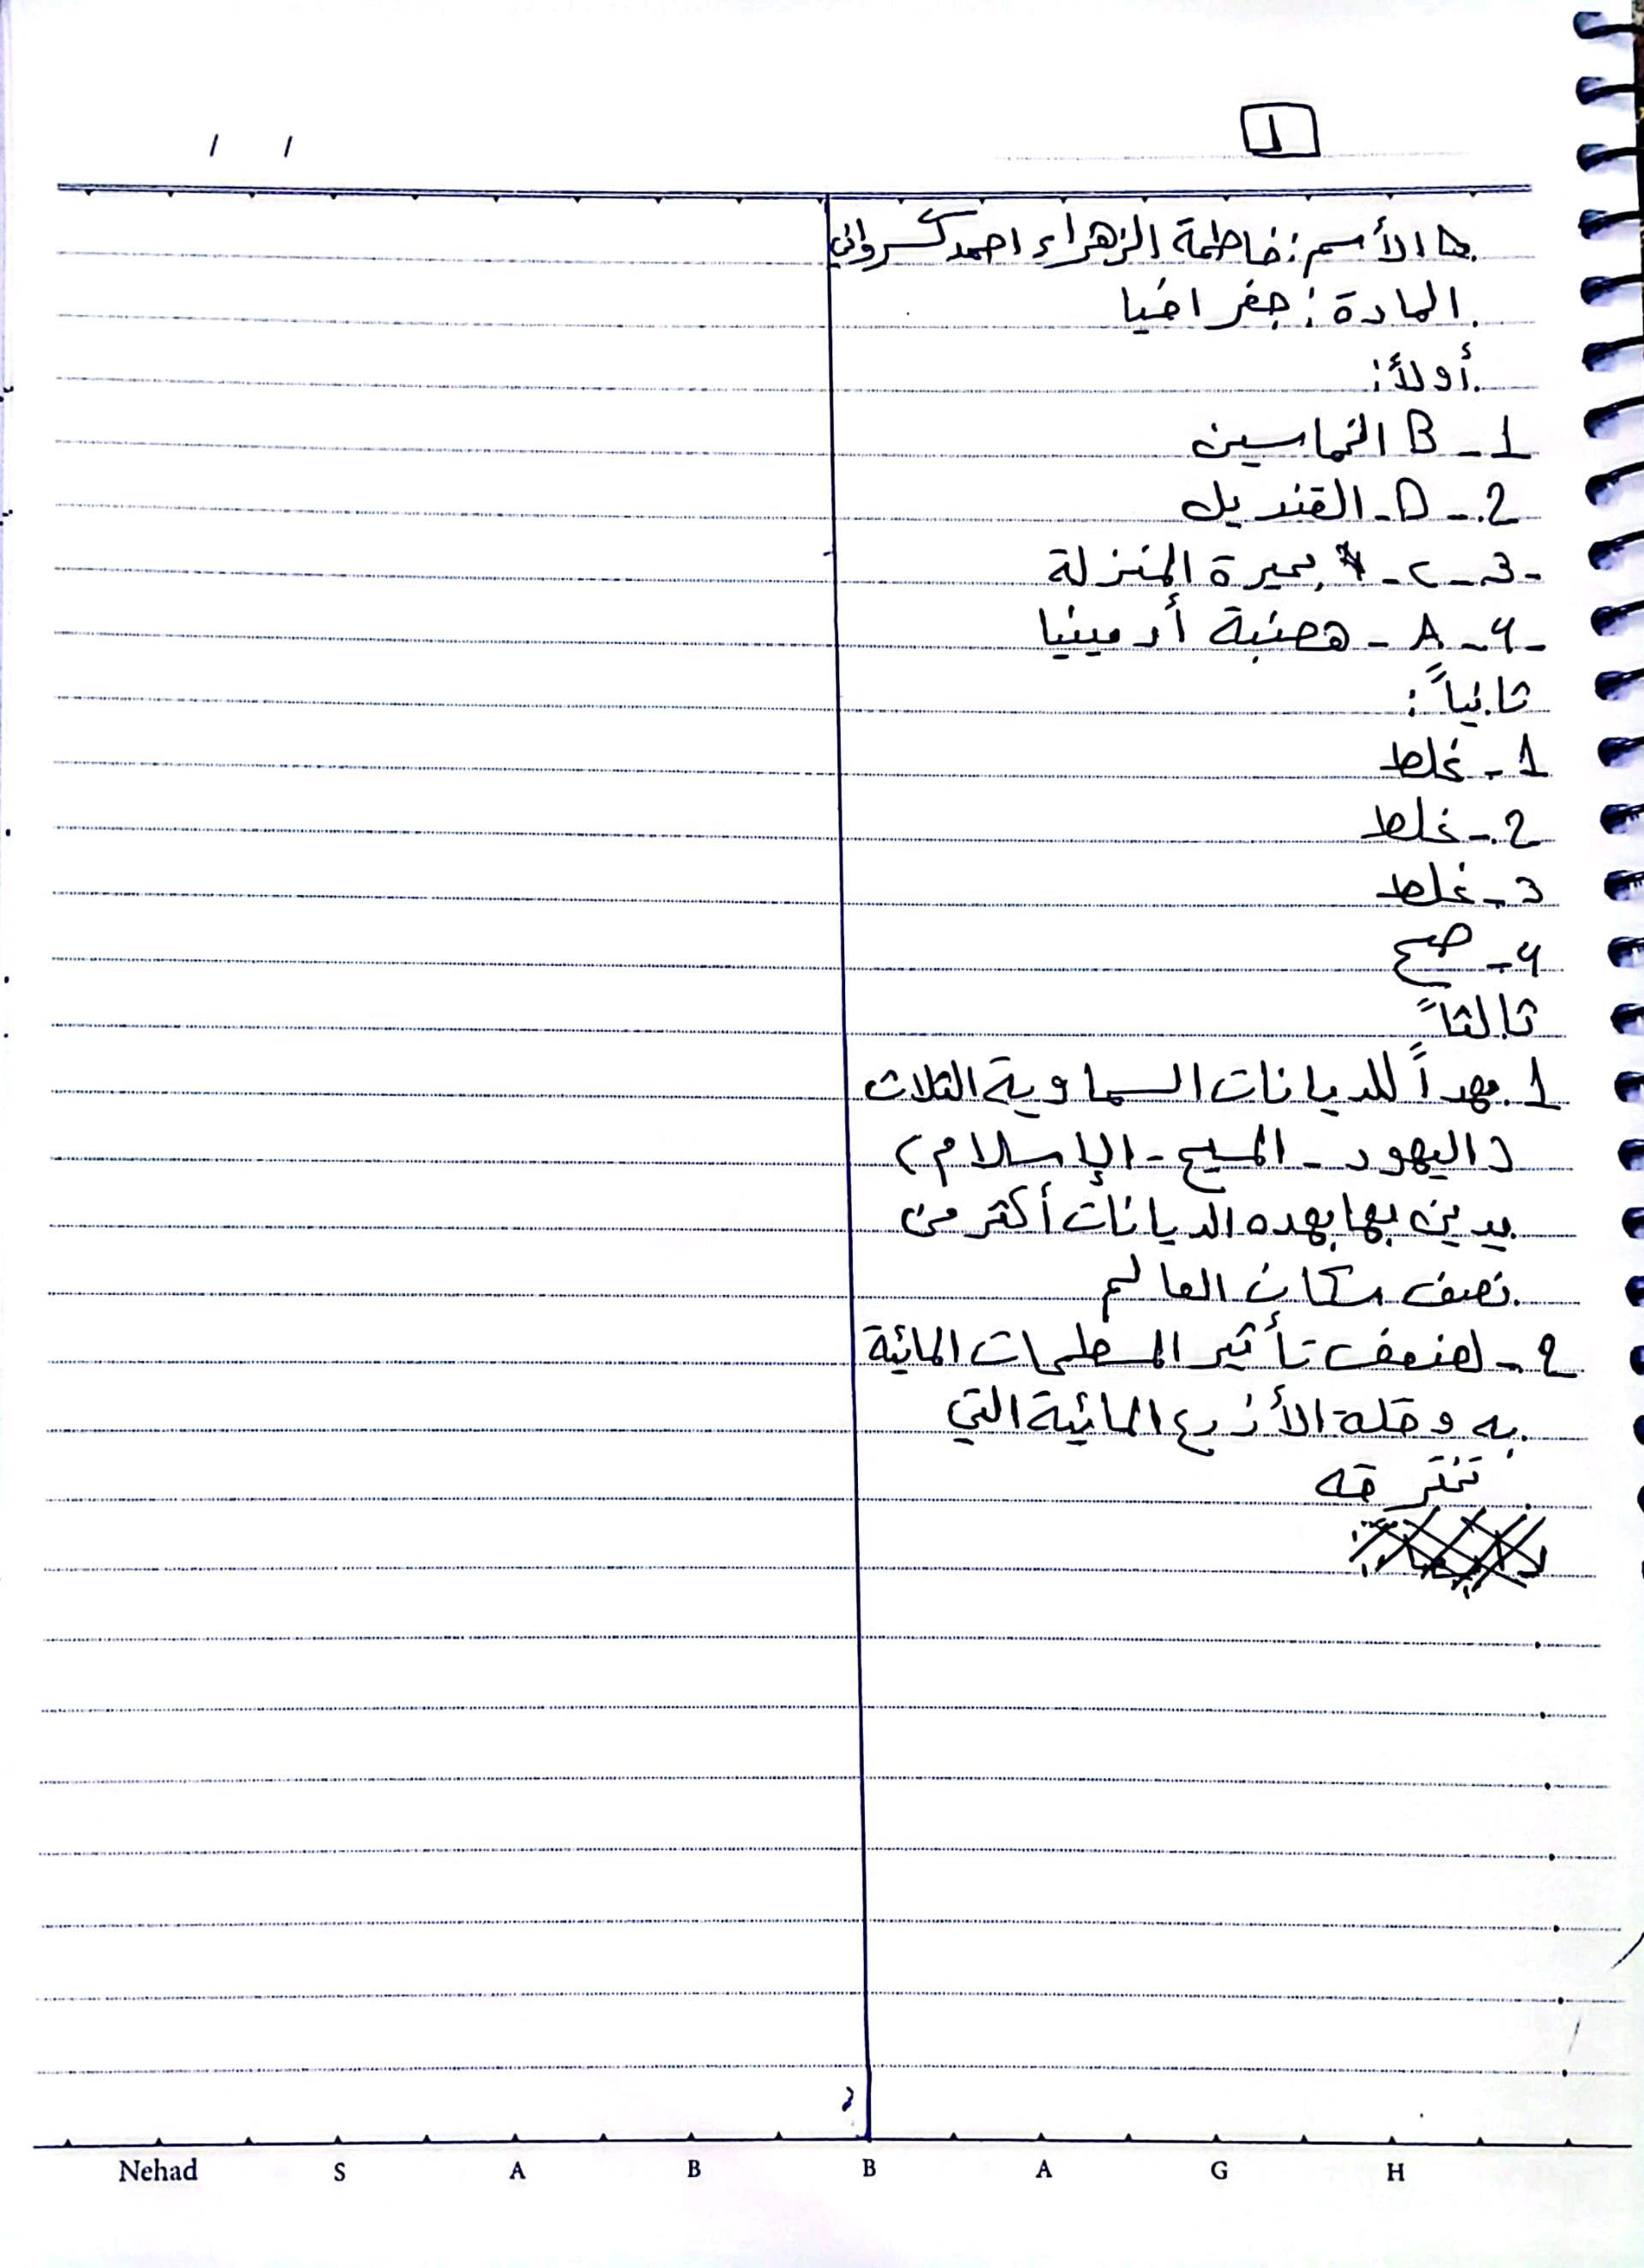 1
الأسم: فاطمة الزهراء احمد كسرواني
المادة: جغرافيا
أولاً:
1_ B الخماسين
2_ D_ القنديل
3_ C_ بحيرة المنزلة
4_ A_ هضبة أرمينيا
ثانياً:
1_ غلط
2_ غلط
3_ غلط
4_ صح
ثالثاً
1. مهداً للديانات السماوية الثلاث
(اليهود_ المسيح_ الإسلام)
يدين بها بهده الديانات أكثر من
نصف سكان العالم
2_ لضعف تأثير المسطحات المائية
به وقلة الأذرع المائية التي
تخترقه
Nehad S A B B A G H